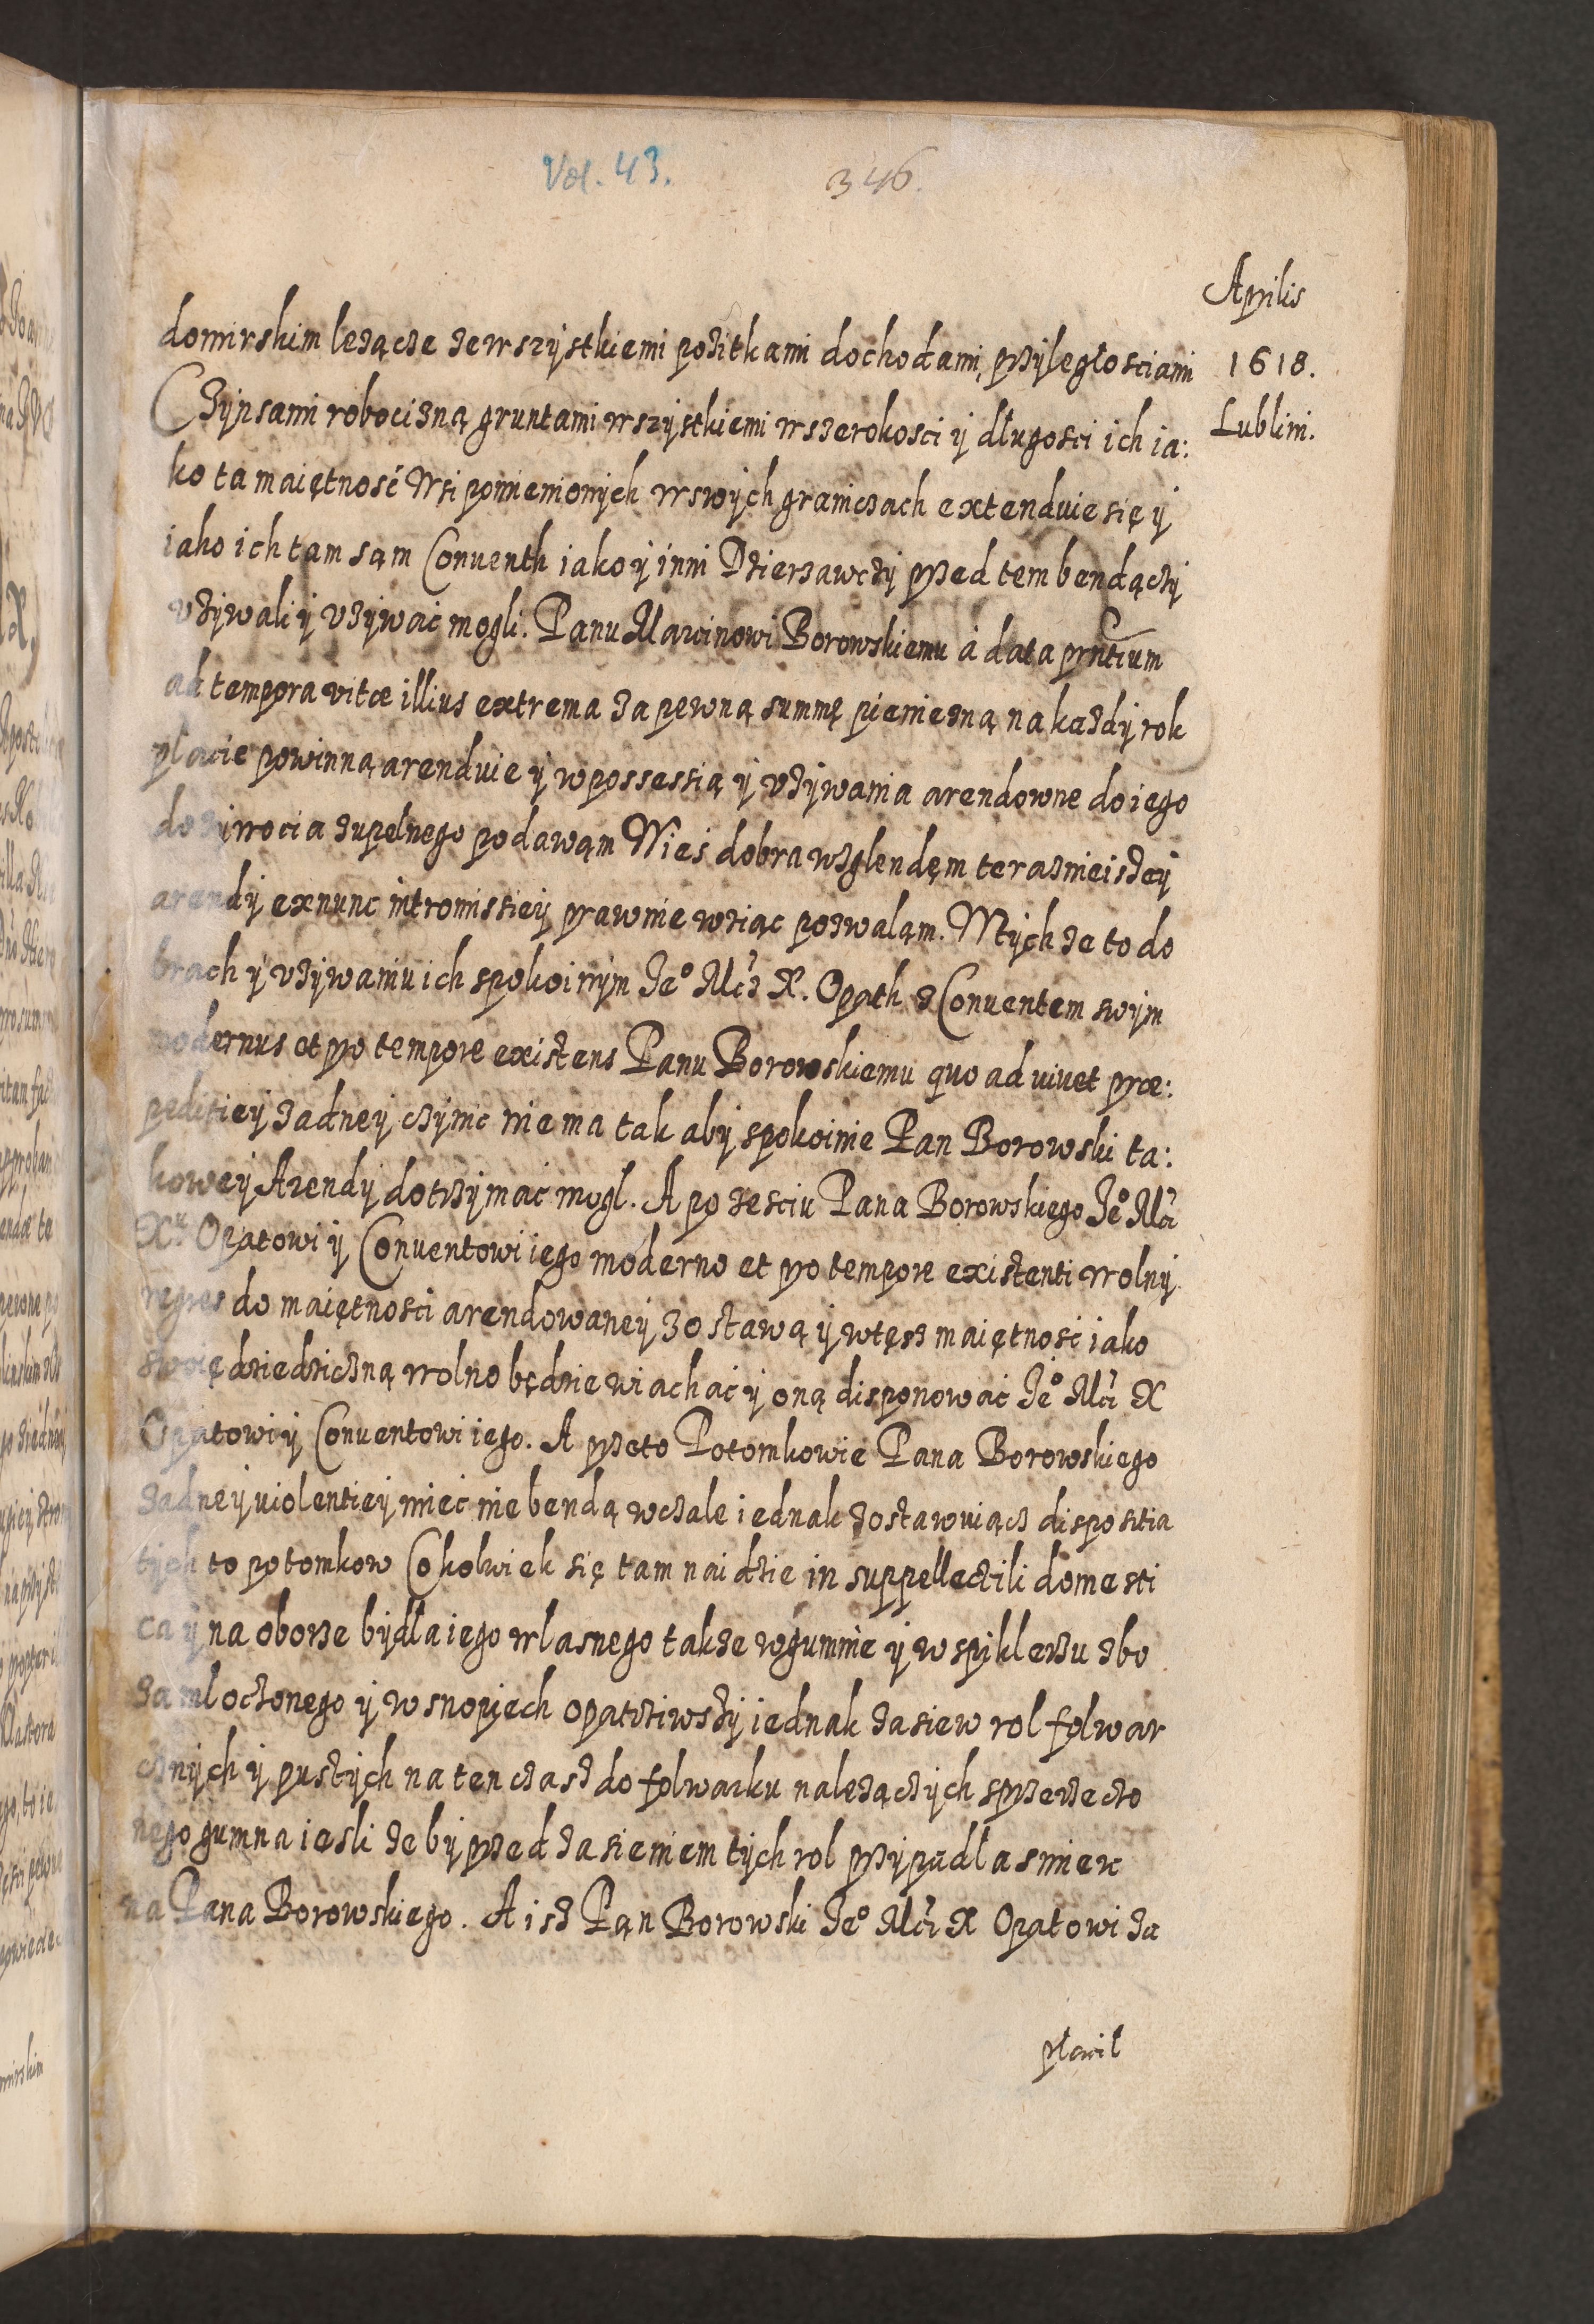 Vol. 43.
346.
Aprilis
1618.
Lublini.
domirskim lezącze ze wszystkiemi pozitkami dochodami, przyległosciami
Czynsami robocizną gruntami wszystkiemi w szerokosci y długosci ich ia:
ko ta maiętnosć Wsi pomienionych w swych graniczach extenduie się y
iako ich tam sąm Conuenth iako y inni Dzierzawczy przed tem bendączy
vzywali y vzywać mogli. Panu Marcinowi Borowskiemu à data prntium
ad tempora vitæ illius extrema za pewną summę pieniezną na kazdy rok
placic powinną arenduie y w possessią y vzywania arendowne do iego
do zywocia zupelnego podawąm W ies dobra wzglendęm terazmeiszey
arendy ex nunc intromissiey prawnie wziąc pozwaląm. W tych ze to do
brach y vzywaniu ich spokoinym Jeº Mcz X. Opath z Conuentem swym
modernus et pro tempore existens Panu Borowskiemu quo ad viuet præ:
peditiey zadney czynic nie ma tak aby spokoinie Pan Borowski ta:
kowey Arendy dotrzymać mogl. A po zesciu Pana Borowskiego Jeº Mci
Xu Opatowi y Conuentowi iego moderno et pro tempore existenti wolny
regres do maiętnosci arendowaney zostawą y w tęsz maiętnosc iako
swoię dziedziczną wolno będzie wiachać y oną disponować Jeº Mci X
Opatowi y Conuentowi iego. A przeto Potomkowie Pana Borowskiego
zadney uiolentiey miec nie bendą wczale iednak zostawuiącz dispositia
tych to potomkow Cokolwiek się tam naidzie in suppellectili domesti
ca y na oborze bydła iego wlasnego takze w gumnie y w spiklerzu zbo
za mloczonego y w snopiech opatrziwszy iednak zasiew rol folwar
cznych y pustych na ten czasz do folwarku nalezączych sprzerzeczo
nego gumna iesli ze by przed zasieniem tych rol przypadla smierc
na Pana Borowskiego. A isz Pąn Borowski Jeº Mci X Opatowi za
placil